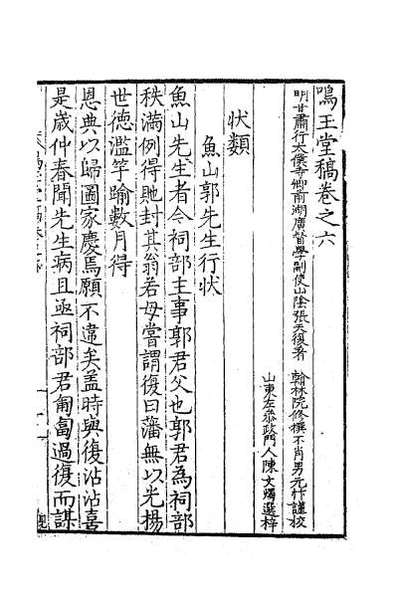 鳴玉堂稿卷之六
明甘肅行太僕寺卿前湖廣督學副使山陰張天復著
翰林院修撰不肖男元忭謹校
山東左恭政門人陳文燭選梓
狀類
魚山郭先生行狀
魚山先生者今祠部主事郭君父也郭君為祠部
秩滿例得貤封其翁若母嘗謂復曰藩無以光揚
世德濫竽踰數月得
恩典以歸圖家慶焉願不違矣盖時與復沾沾喜
是歲仲春聞先生病且亟祠部君匍匐過復而謀